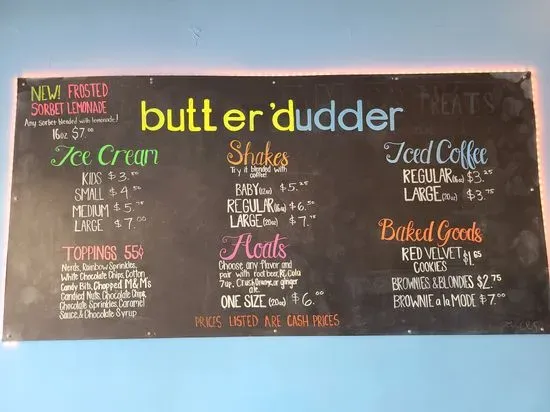 NEW! FROSTED
SORBET LEMONADE
Any sorbet blended with lemonade!
16oz $7.00
butter'dudder
TREATS
Ice Cream
KIDS $3.50
SMALL $4.50
MEDIUM $5.75
LARGE $7.00
TOPPINGS 55¢
Nerds, Rainbow Sprinkles,
White Chocolate Chips, Cotton
Candy Bits, Chopped M&M's
Candied Nuts, Chocolate Chips,
Chocolate Sprinkles, Caramel
Sauce, & Chocolate Syrup
Shakes
Try it blended with
coffee!
BABY (12oz) $5.25
REGULAR (16oz) $6.50
LARGE (20oz) $7.75
Floats
Choose any flavor and
pair with root beer, RC Cola
7up, Crush Orange, or ginger
ale.
ONE SIZE (20oz) $6.00
Iced Coffee
REGULAR (16oz) $3.25
LARGE (20oz) $3.75
Baked Goods
RED VELVET
COOKIES $1.65
BROWNIES & BLONDIES $2.75
BROWNIE a la MODE $7.00
PRICES LISTED ARE CASH PRICES